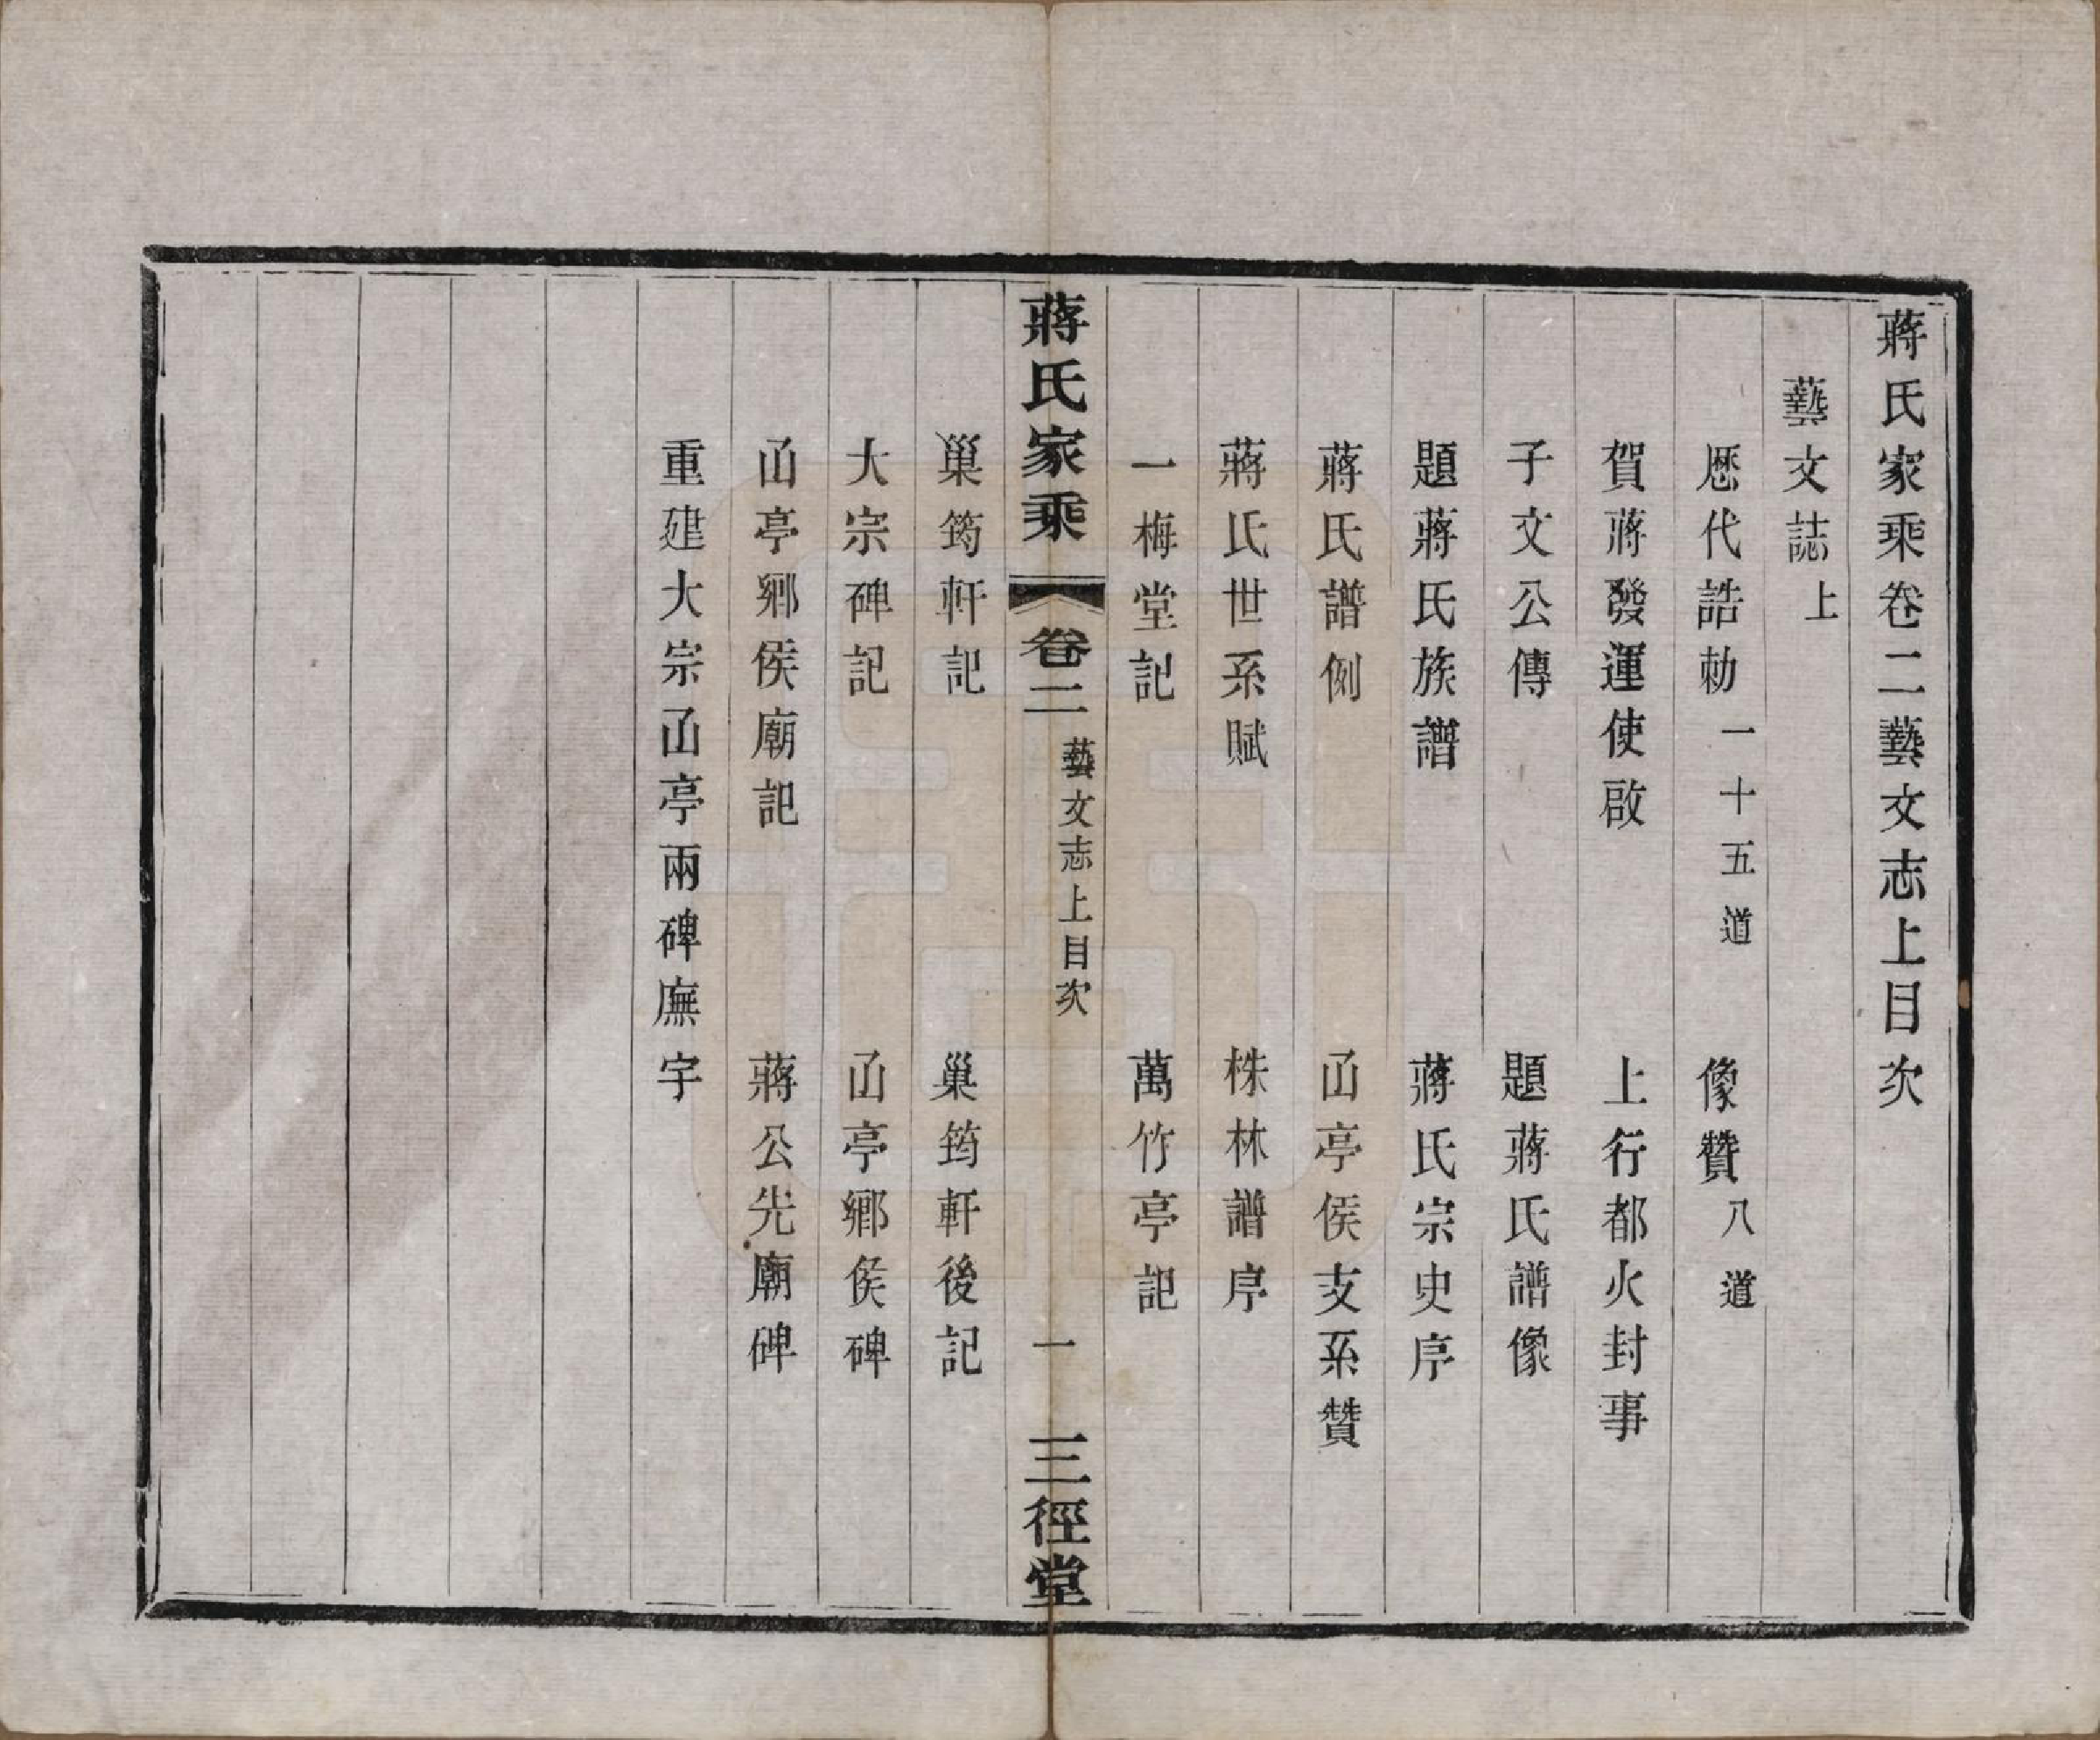 蔣氏家乘卷二藝文志上目次
藝文誌上
歷代誥勅一十五道　像贊八道
賀蔣發運使啟　上行都火封事
子文公傳　題蔣氏譜像
題蔣氏族譜　蔣氏宗史序
蔣氏譜例　㓊亭侯支系贊
蔣氏世系賦　株林譜序
一梅堂記　萬竹亭記
蔣氏家乘　卷二　藝文志上目次　一　三徑堂
巢筠軒記　巢筠軒後記
大宗碑記　㓊亭鄉侯碑
㓊亭鄉侯廟記　蔣公先廟碑
重建大宗㓊亭兩碑廡宇